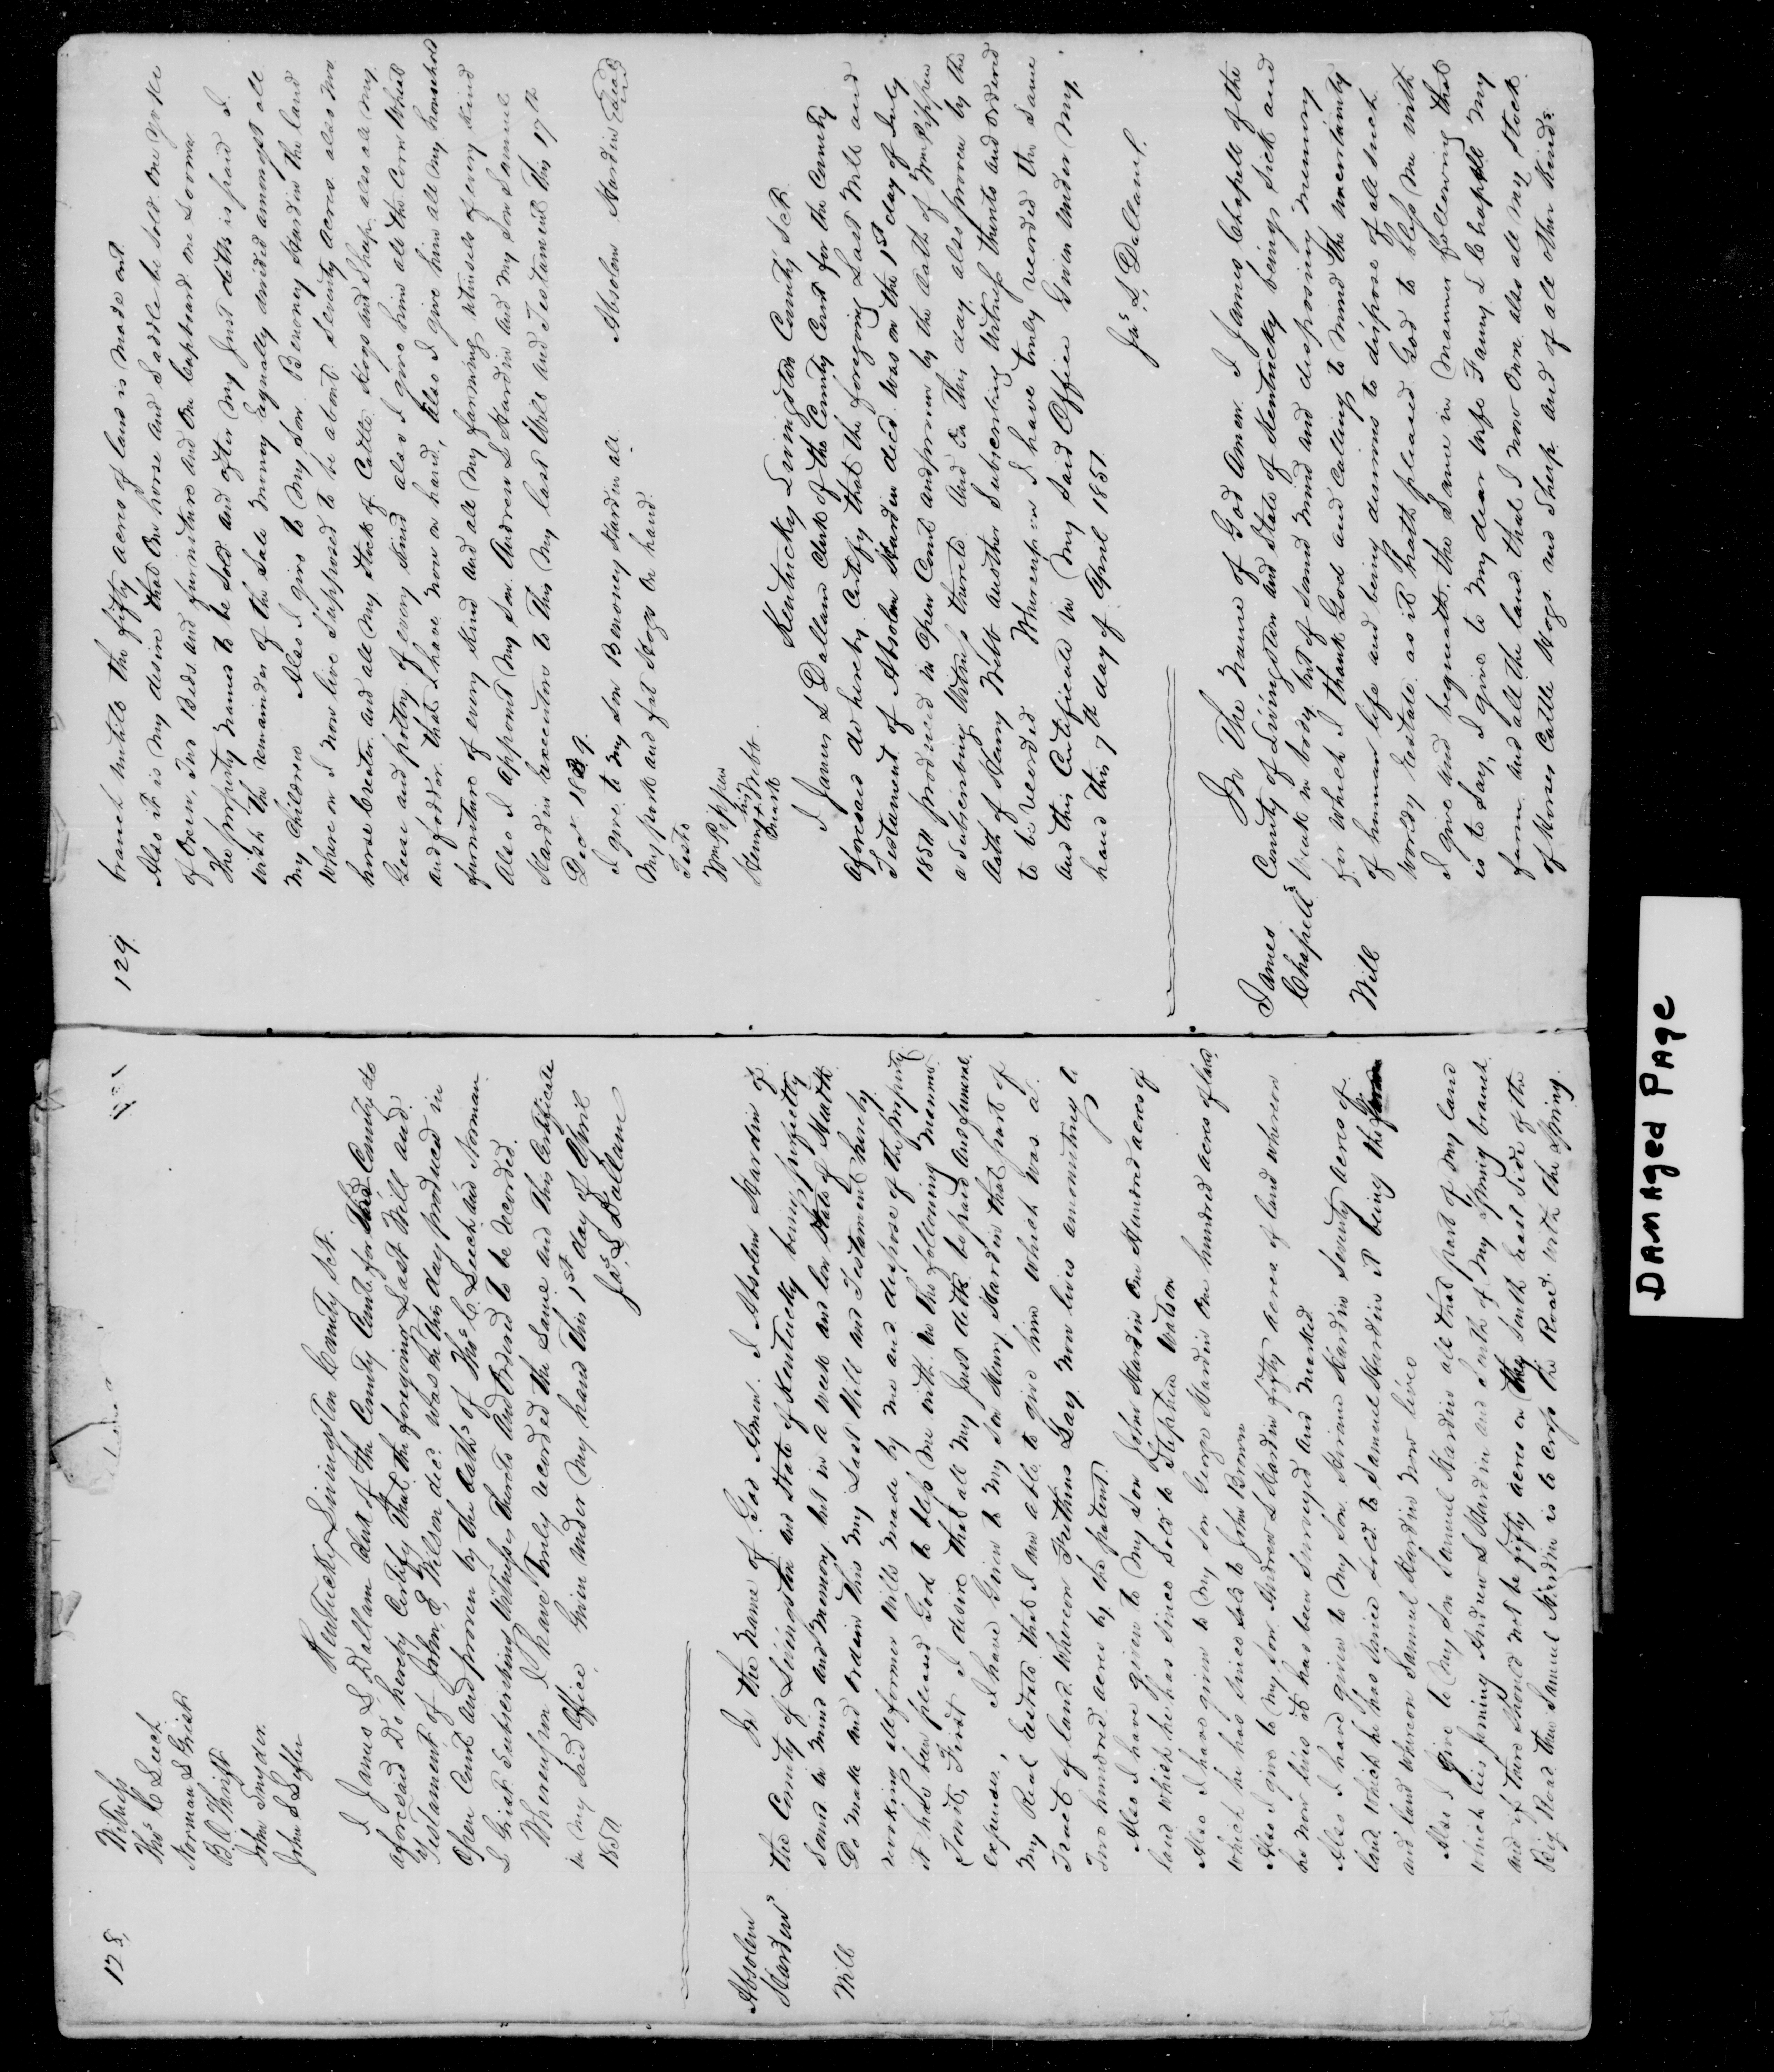 128,
Witness
Thos C Leech
Norman S Grist
B. O. Thrift
John Snyder.
John S Lefler
Kentucky Livingston County Sct.
I James L Dallam Clerk of the County Court for Said County do
aforesaid Do hereby Certify that the foregoing Last Will and
Testament of John E Wilson decd was on this day produced in
Open Court and proven by the Oaths of Thos C. Leech and Norman
S Grist Subscribing Witnesses thereto And Ordered to be Recorded.
Whereupon I have Truly recorded the Same and this Certificate
in My Said Office Given under My hand this 1st day of April
1851
Jas L Dallam
Absolem
Hardins
Will
In the Name of God Amen. I Absolem Hardin of
the County of Livingston and State of Kentucky being perfectly
Sound in Mind and Memory but in a Weak and low State of Health
Do Make and Ordain this My Last Will and Testament hereby
revoking all former Wills Made by Me and dispose of the property
it has been pleased God to bless Me with in the following Manner
(Towit, First I desire that all My Just debts be paid and funeral
expenses, I have Given to My Son Henry Hardin that part of
My Real Estate that I am able to give him which was a
Tract of land whereon Gay now lives amounting to
Two hundred acres by the patent.
Also I have given to My Son John Hardin One Hundred acres of
land which he has since Sold to Stephen Watson
Also I have given to My Son George Hardin One hundred acres of land
which he has Since Sold to John Brown
Also I give to My Son Andrew S Hardin fifty acres of land whereon
he now lives it has been Surveyed and Marked
Also I have given to My Son Hiram Hardin Seventy acres of
land which he has Since Sold to Samuel Hardin it being the
and land whereon Samuel Hardin now lives
Also I give to My Son Samuel Hardin all that part of My land
which lies joining Andrew S Hardin and South of My Spring branch
and if there Should not be fifty acres on the South East Side of the
Big Road then Samuel Hardin is to cross the Road with the Spring
129
branch untill the fifty acres of land is Made out
Also it is My desire that One horse and Saddle be Sold One Yoke
of Oxen, Two Beds and furniture and One Cupboard one Sorrel
The property Named to be Sold and after My Just debts is paid I
wish the remainder of the Sale Money Equally divided amongst all
My Children Also I give to My Son Benoney Hardin the land
where on I now live Supposed to be about Seventy acres also two
horse Creatures and all My Stock of Cattle Hogs and Sheep also all My
Geese and poltry of every Kind also I give him all the Corn Wheat
and fodder that I have now on hand, Also I give him all My household
furniture of every Kind and all My farming utensils of every Kind
Also I appoint My Son Andrew S Hardin and My Son Samuel
Hardin Executors to This My last Will and Testament This 17th
Decr 1849.
Absolem Hardin Seal
I give to My Son Benoney Hardin all
My pork and fat Hogs On hand.
Teste
Wm Pippin
his
Henry x Webb
mark
Kentucky Livingston County Sct
I James L Dallam Clerk of the County Court for the County
aforesaid do hereby Certify that the foregoing Last Will and
Testament of Absolem Hardin decd Was on the 1st day of July
1850 produced in Open Court and proven by the Oath of Wm Pippin
a Subscribing Witness thereto And On this day also proven by the
Oath of Henry Webb another Subscribing Witness thereto And Ordered
to be recorded Whereupon I have truly recorded the Same
and this Certificate in My Said Office Given Under My
hand this 7th day of April 1851
Jas L Dallam,
James
Chapells
Will
In The Name of God Amen. I James Chapell of the
County of Livingston and State of Kentucky being Sick and
Weak in body but of Sound Mind and disposing Memory
for which I thank God and Calling to Mind the uncertainty
of human life and being desirous to dispose of all Such
Worldly Estate as it hath pleased God to bless Me with
I give and bequeath the Same in Manner following that
is to Say, I give to My dear wife Fanny L Chappell My
farm and all the land that I now Own also all My Stock
of Horses Cattle Hogs and Sheep and of all other Kinds
DAMAged PAge